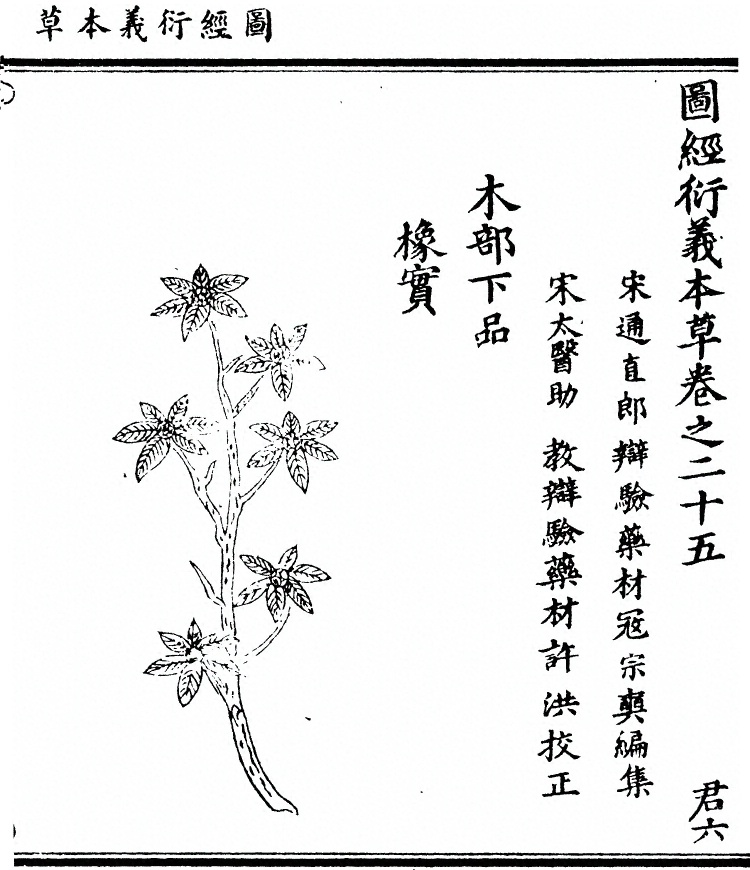 圖經衍義本草
圖經衍義本草卷之二十五 君六
宋通直郎辯驗藥材冦宗奭編集
宋太醫助 教辯驗藥材許洪挍正
木部下品
橡實